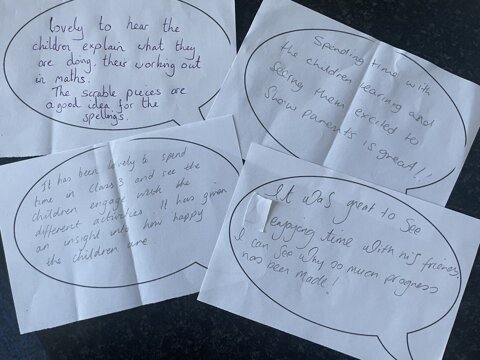 lovely to hear the
children explain what they
are doing, their working out
in maths.
The scrable pieces are
a good idea for the
spellings.
Spending time with
the children learning and
seeing them excited to
Show parents is great!!
It has been lovely to spend
time in Class 3 and see the
children engage with the
different activities. It has given
an insight into how happy
the children are
It was great to see
enjoying time with his friends,
I can see why so much progress
has been made!